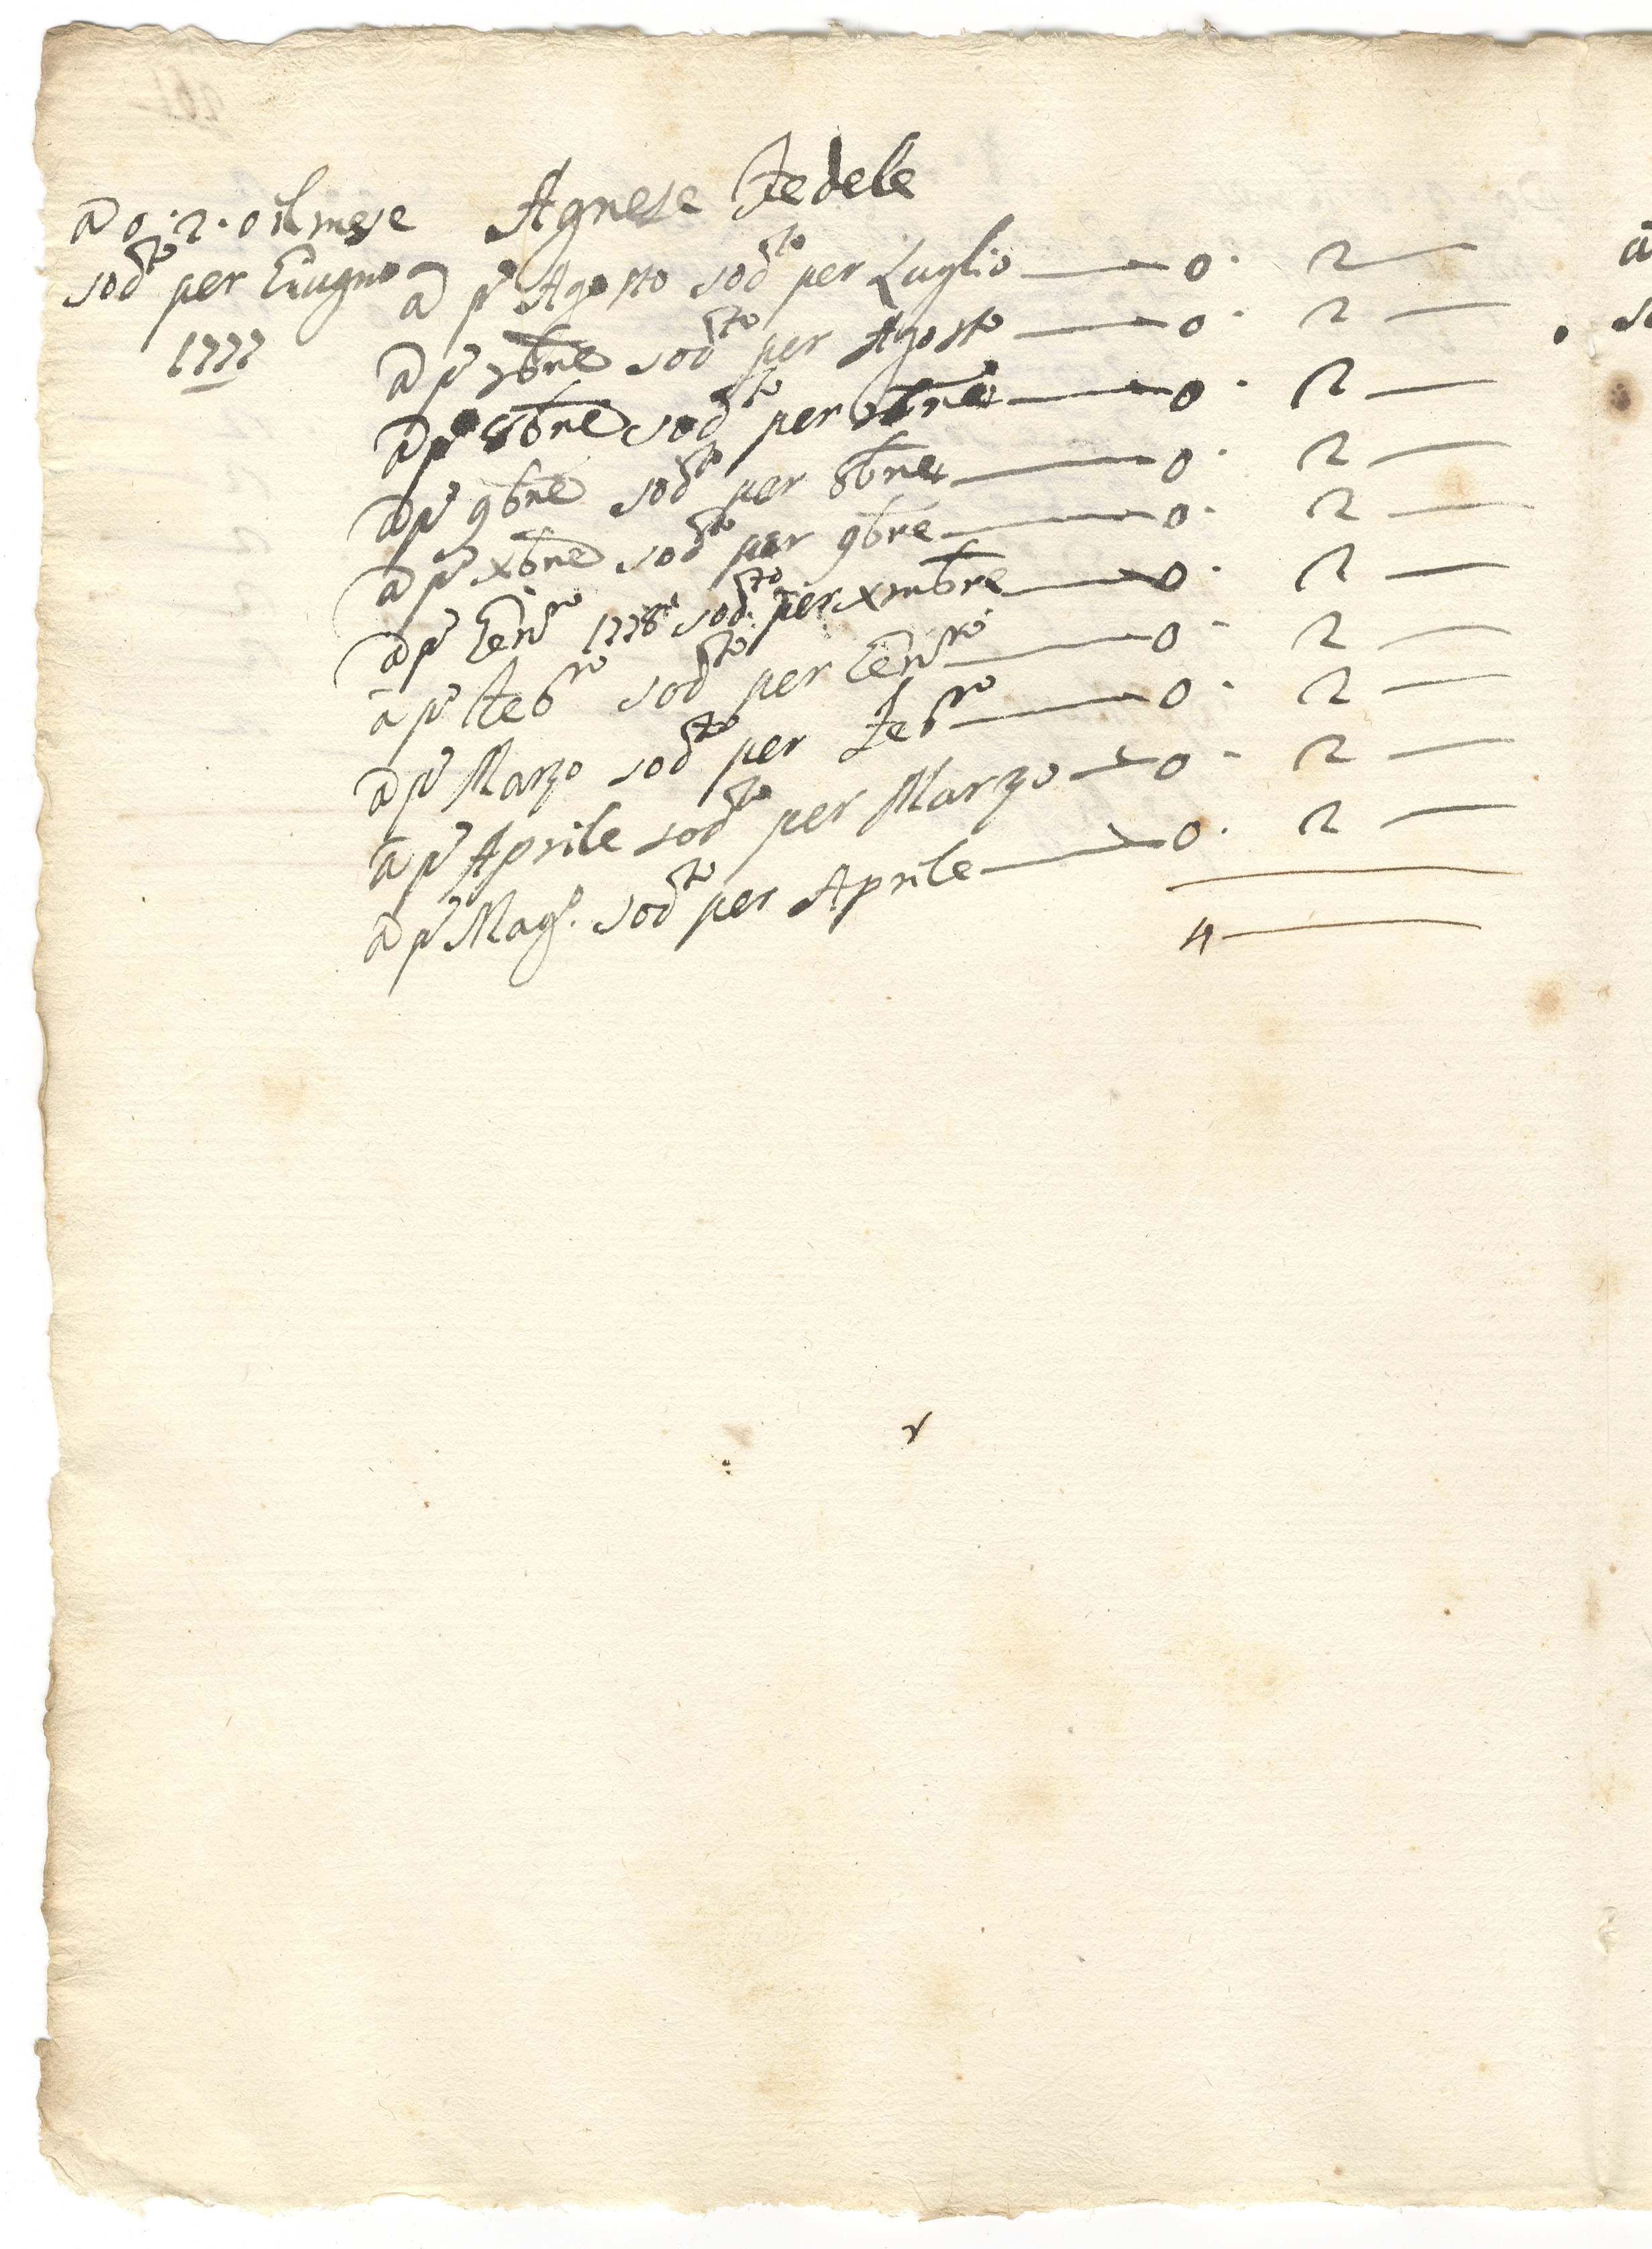 Agnese Fedele
a 0·2·0 il mese
sodto per Giugno
1777
a po Agosto sodto per Luglio — 0· 2 —
a po 7bre sodto per Agosto — 0· 2 —
a po 8bre sodto per 7bre — 0· 2 —
a po 9bre sodto per 8bre — 0· 2 —
a po xbre sodto per 9bre — 0· 2 —
a po Genro 1778 sodto per xmbre — 0· 2 —
a po Febro sodto per Genro — 0· 2 —
a po Marzo sodto per Febro — 0· 2 —
a po Aprile sodto per Marzo — 0· 2 —
a po Mago. sodto per Aprile — 0· 2 —
4 —